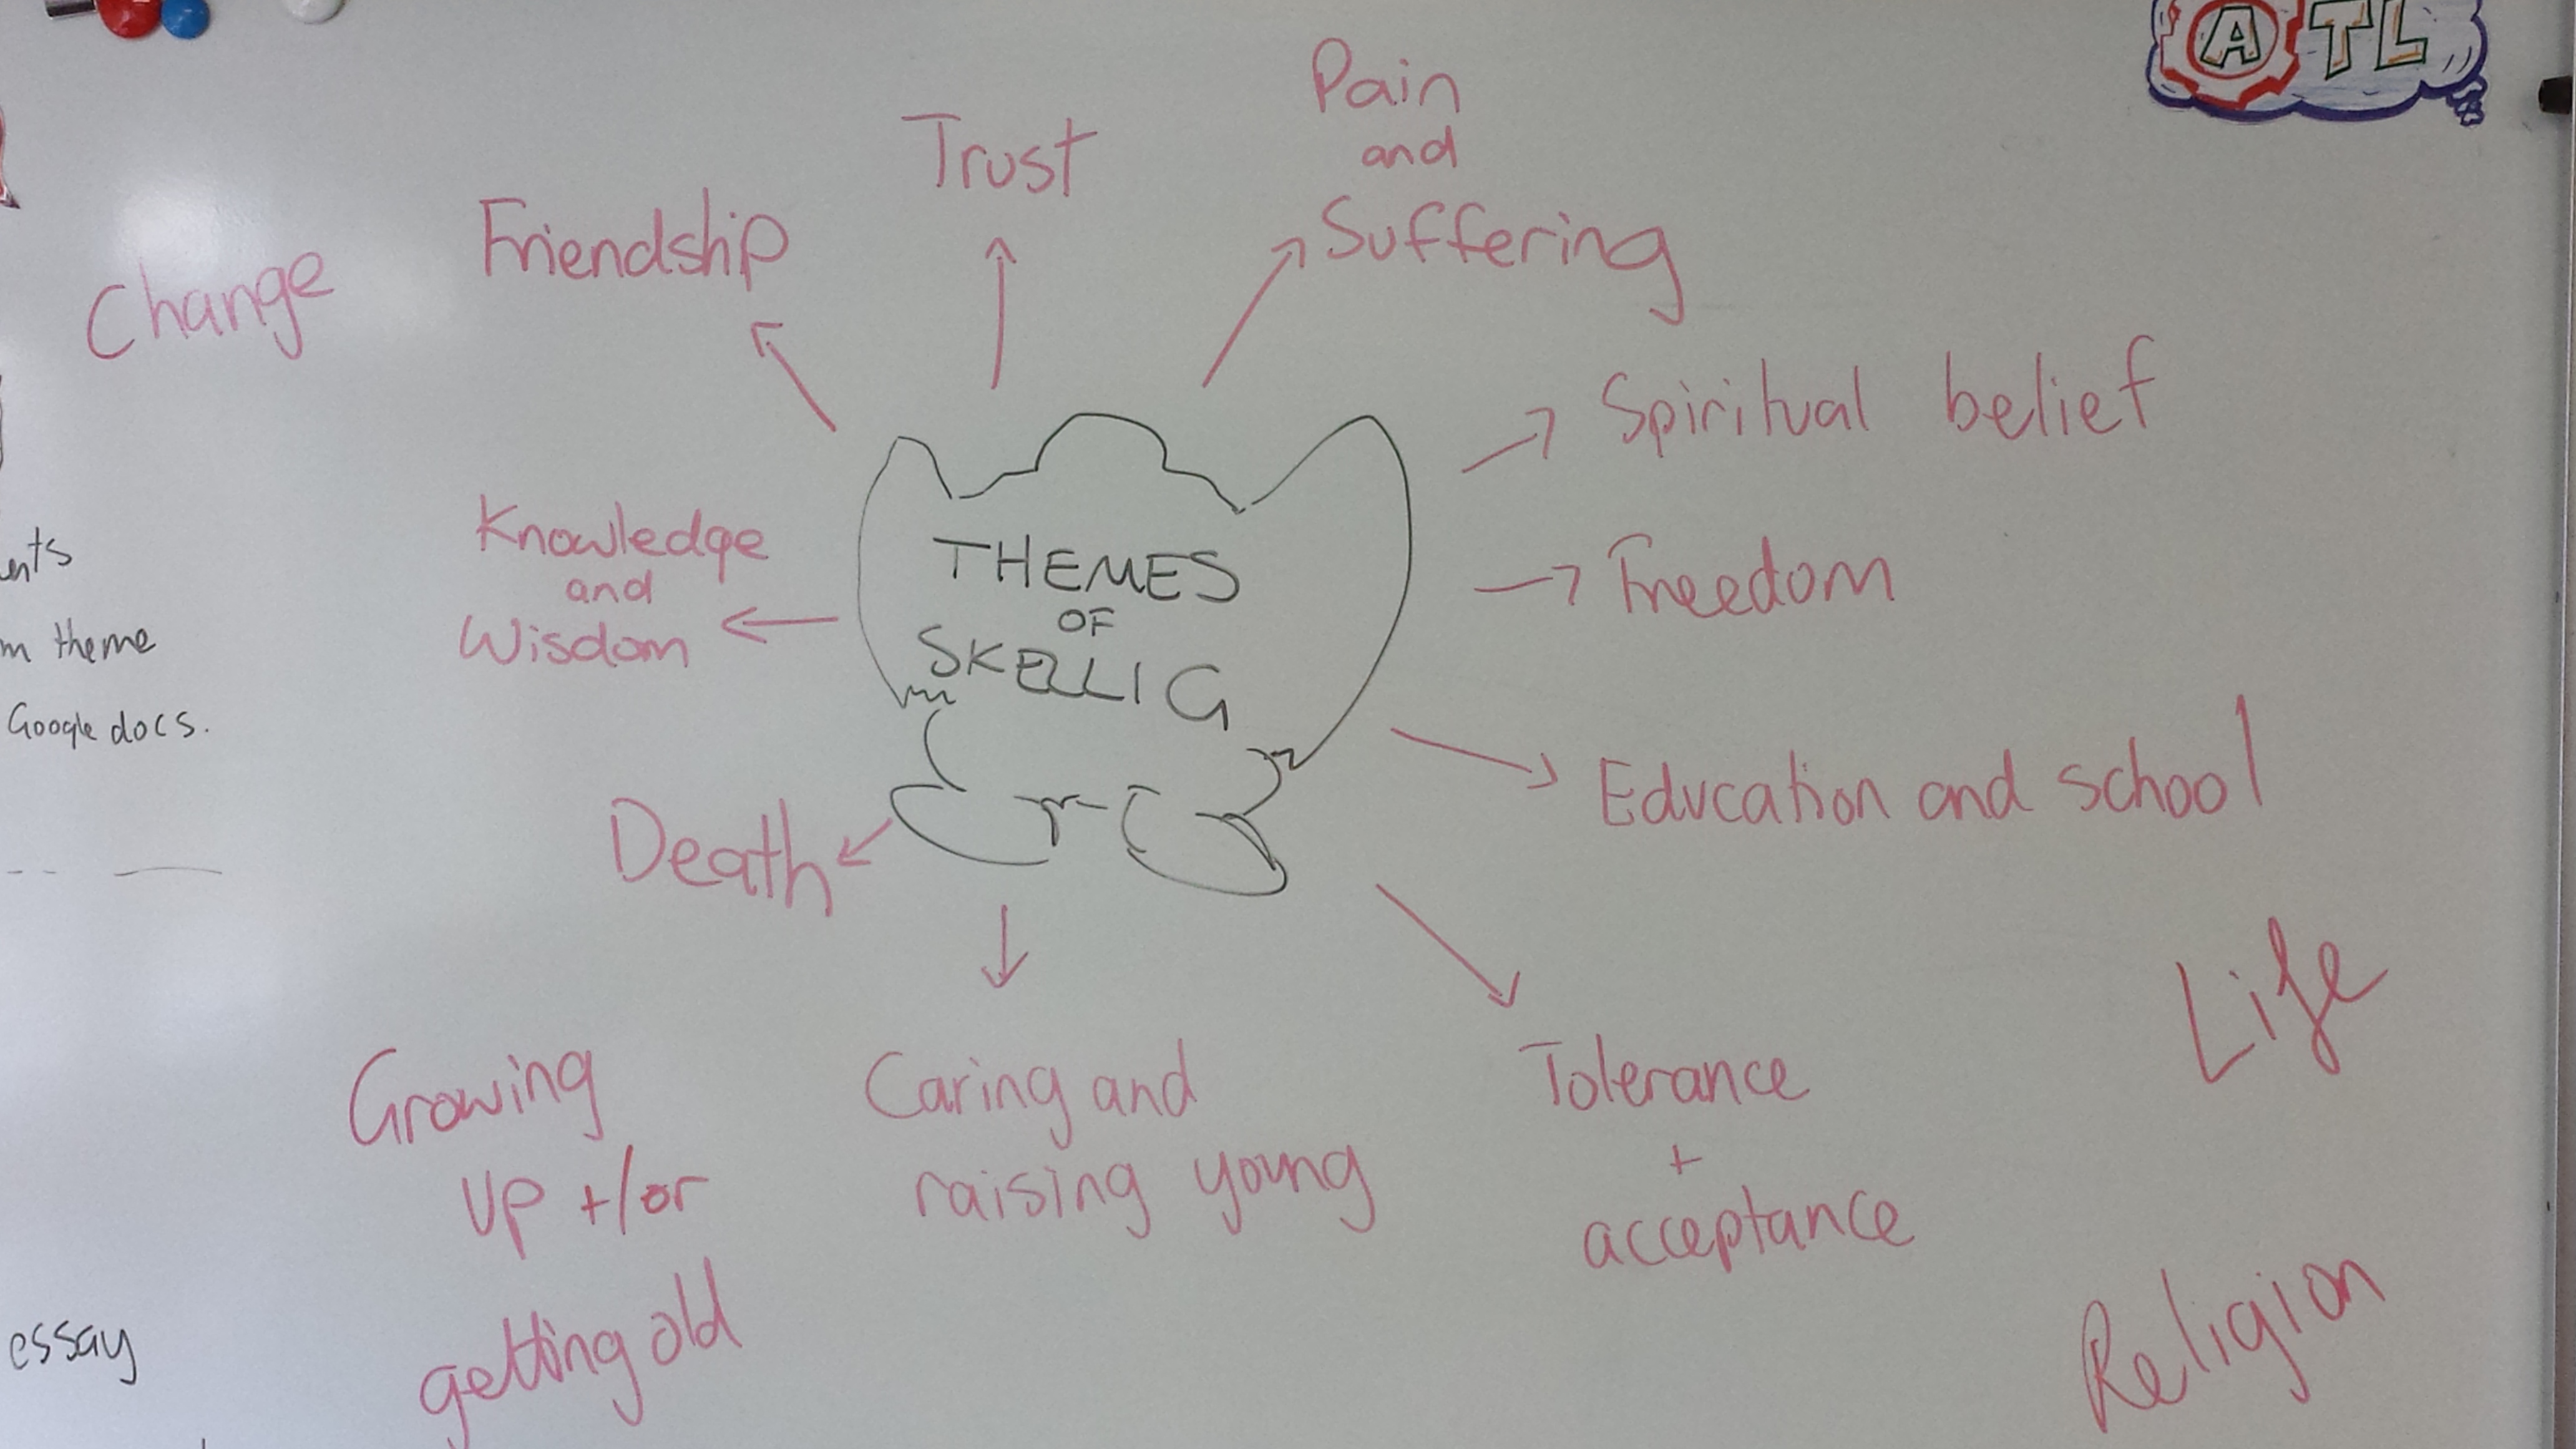 ATL
Pain
and
Suffering
Trust
Friendship
Change
Spiritual belief
Freedom
Knowledge
and
Wisdom
THEMES
OF
SKELLIG
theme
Google docs.
Education and school
Death
Life
Growing
up +/or
getting old
Caring and
raising young
Tolerance
+
acceptance
Religion
essay